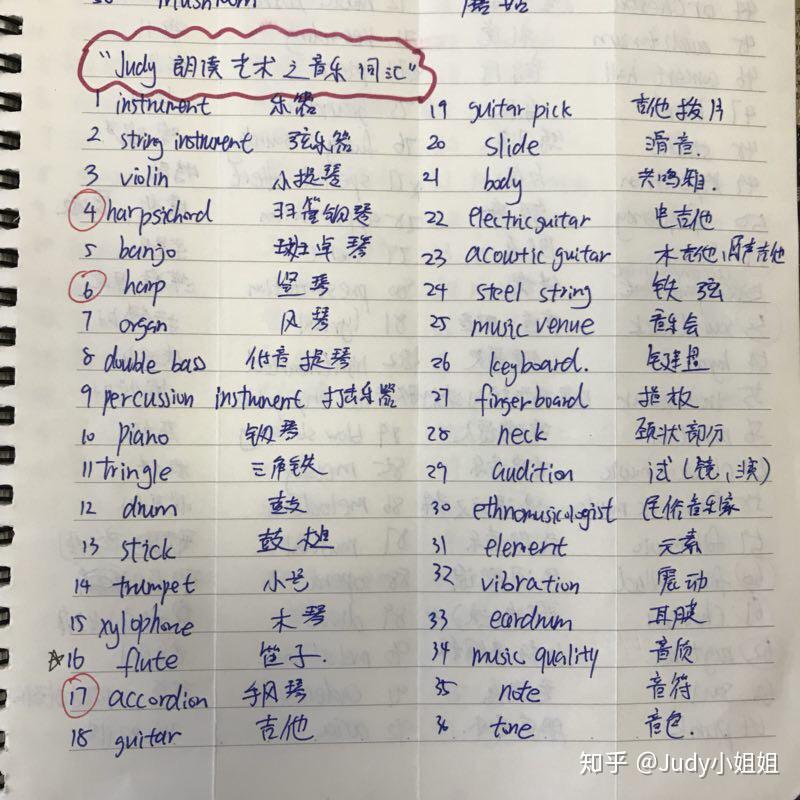 mushroom 蘑菇
"Judy 朗读艺术之音乐词汇"
1 instrument 乐器
2 string instrument 弦乐器
3 violin 小提琴
4 harpsichord 羽管钢琴
5 banjo 班卓琴
6 harp 竖琴
7 organ 风琴
8 double bass 低音提琴
9 percussion instrument 打击乐器
10 piano 钢琴
11 tringle 三角铁
12 drum 鼓
13 stick 鼓槌
14 trumpet 小号
15 xylophone 木琴
16 flute 笛子.
17 accordion 手风琴
18 guitar 吉他
19 guitar pick 吉他拨片
20 slide 滑音.
21 body 共鸣箱.
22 electric guitar 电吉他
23 acoustic guitar 木吉他,原声吉他
24 steel string 铁弦
25 music venue 音乐会
26 keyboard. 键盘
27 fingerboard 指板
28 neck 颈状部分
29 audition 试(镜,演)
30 ethnomusicologist 民俗音乐家
31 element 元素
32 vibration 震动
33 eardrum 耳膜
34 music quality 音质
35 note 音符
36 tone 音色.
知乎 @Judy小姐姐